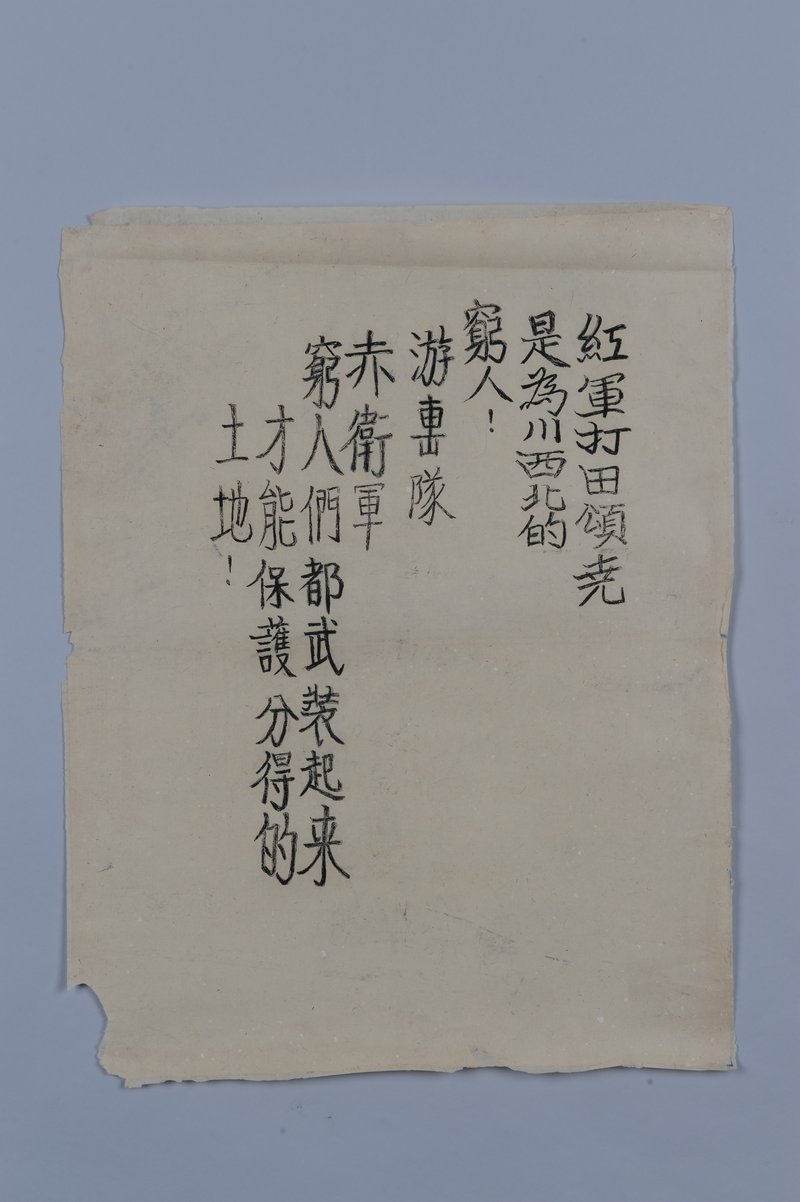 紅軍打田頌尭
是為川西北的
窮人!
游畫隊
赤衛軍
窮人們都武装起来
才能保護分得的
土地!